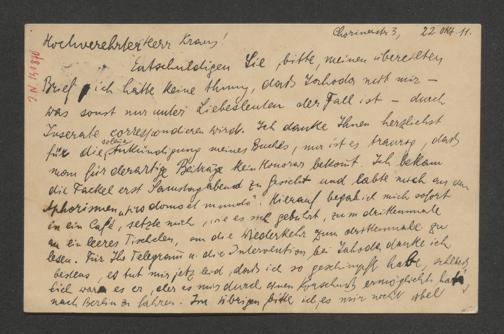 Chorinerstr 3, 22 Okt. 11.
Hochverehrter Herr Kraus!
Entschuldigen Sie, bitte, meinen übereilten
Brief, ich hatte keine Ahnung, dass Jahoda mit mir –
was sonst nur unter Liebesleuten der Fall ist – durch
Inserate correspondieren wird. Ich danke Ihnen herzlichst
für die Ankündigung meines Buches, nur ist es traurig, dass
man für derartige Beiträge kein Honorar bekomt. Ich bekam
die Fackel erst Samstag abend zu Gesicht und labte mich an den
Aphorismen „pro domo et mundo“. Hierauf begab ich mich sofort
in ein Café, setzte mich, wie es sich gebührt, zum drittenmale
an ein leeres Tischchen, um die Wiederkehr zum drittenmale zu
lesen. Für Ihr Telegram u. die Intervention bei Jahoda danke ich
bestens, es tut mir jetzt leid, dass ich so geschimpft habe, schliess-
lich war es er, der es mir durch einen Vorschuss ermöglicht hat
nach Berlin zu fahren. Im übrigen bitte ich, es mir nicht übel